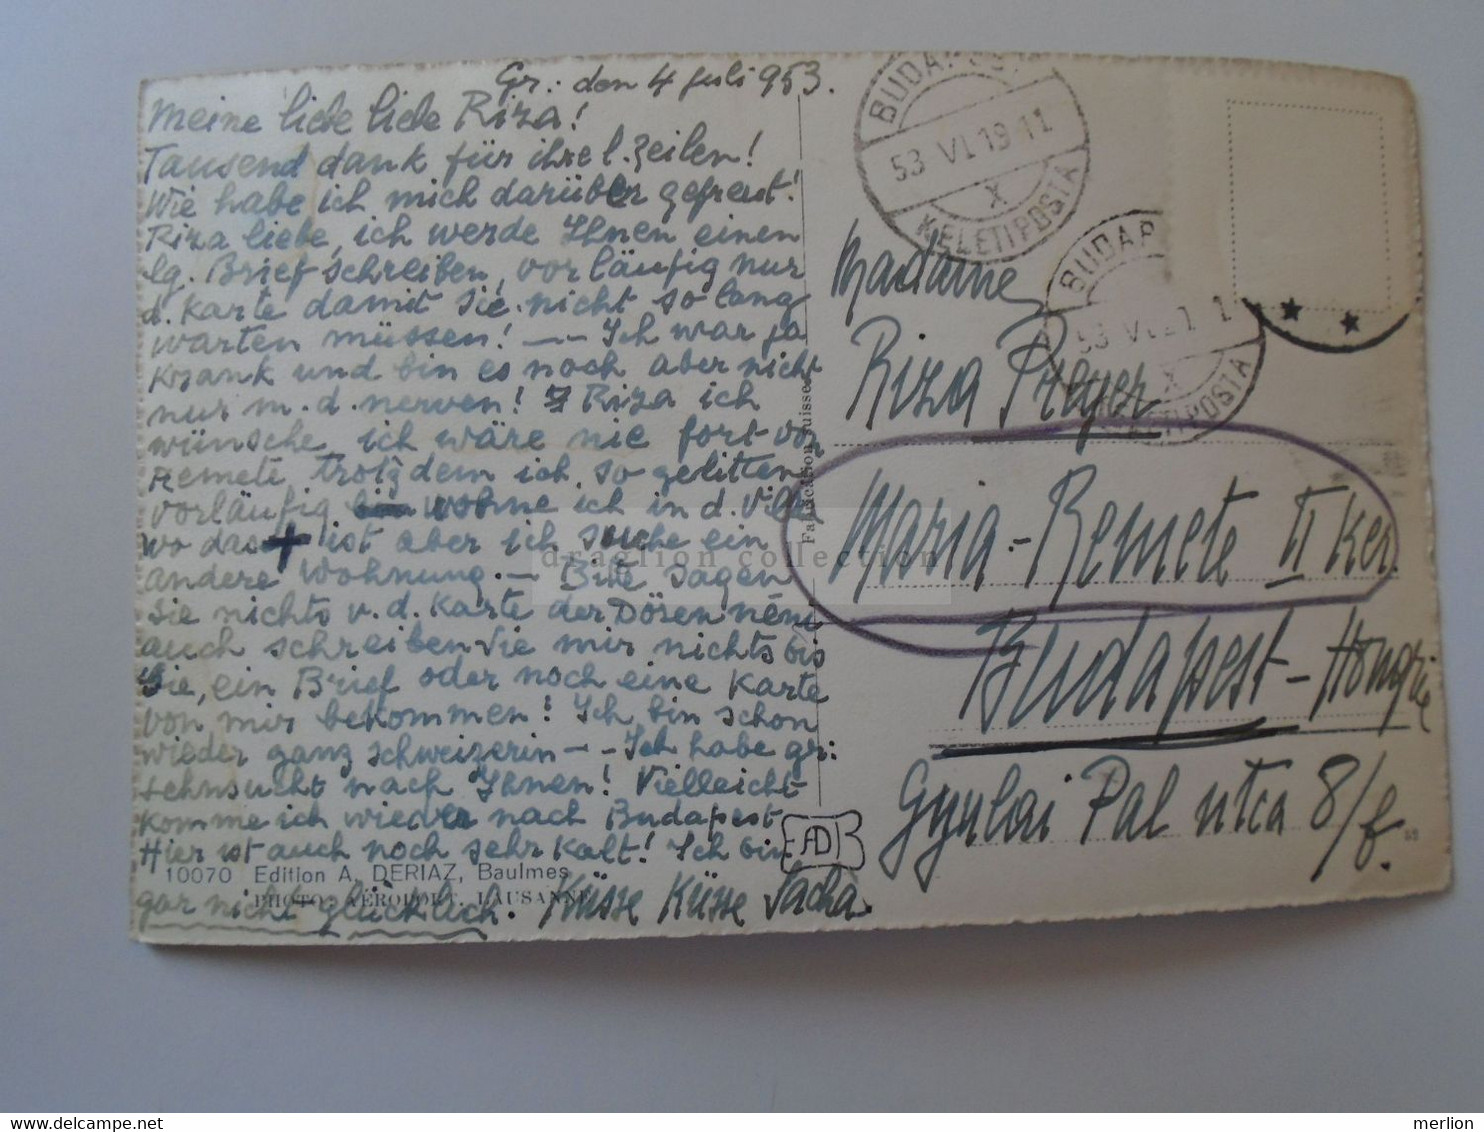 Gr: den 4 juli 953.
Meine liebe liebe Riza!
Tausend dank für ihre l. Zeilen!
Wie habe ich mich darüber gefreut!
Riza liebe, ich werde Ihnen einen
lg. Brief schreiben, vorläufig nur
d. Karte damit Sie nicht so lang
warten müssen! — Ich war ja
krank und bin es noch aber nicht
nur m. d. nerven! Riza ich
wünsche ich wäre nie fort von
Remete, trotzdem ich so gelitten
vorläufig wohne ich in d. Villa
wo das + ist aber ich suche ein
andere Wohnung. — Bitte sagen
Sie nichts v. d. Karte der
auch schreiben Sie mir nichts bis
Sie, ein Brief oder noch eine Karte
von mir bekommen! Ich bin schon
wieder ganz schweizerin — Ich habe gr:
sehnsucht nach Ihnen! Vielleicht
komme ich wieder nach Budapest
Hier ist auch noch sehr kalt! Ich bin
gar nicht glücklich. Küsse Küsse Sacha.
10070 Edition A. DERIAZ, Baulmes
PHOTO: AÉROPORT, LAUSANNE
Fabrication suisse
AD
BUDAPEST
53 VI 19 11
X
KELETI POSTA
BUDAP
53 VI 21 1
X
KELETI POSTA
Madame
Riza Preyer
Maria-Remete II Ker.
Budapest - Hongrie
Gyulai Pal utca 8/f.
dragilion collection
merlion